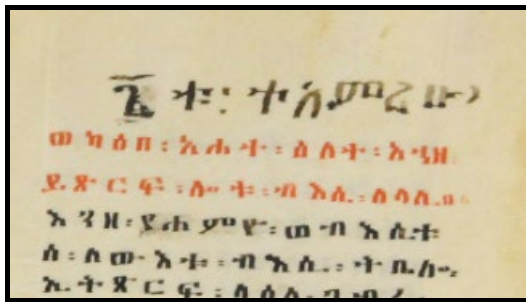 ቱ፡ ተአምሪሁ
ወካዕበ፡ አሐተ፡ ዕለተ፡ እንዘ
ይጼርፍ፡ ሎቱ፡ ብእሲ፡
እንዘ፡ የሐምዮ፡ ወብእሲቱ
ሰ፡ ለውእቱ፡ ብእሲ፡ ትቤሎ፡
ኢትጸርፍ፡